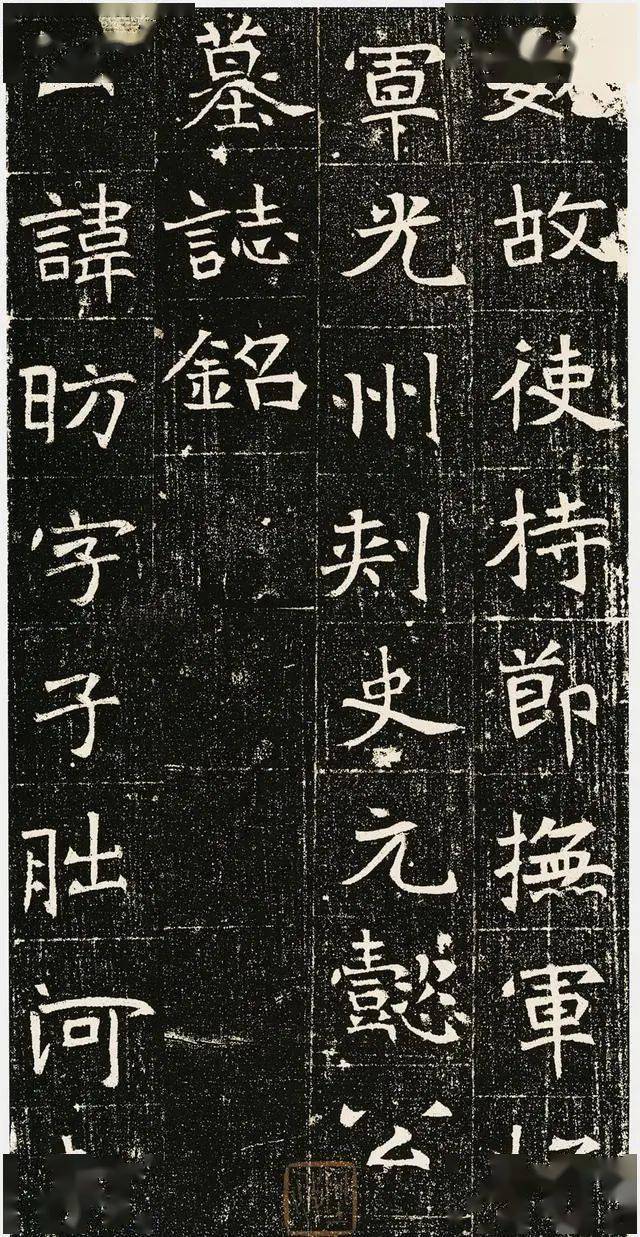 故使持節撫軍
軍光州刺史元懿公
墓誌銘
諱昉字子朏河